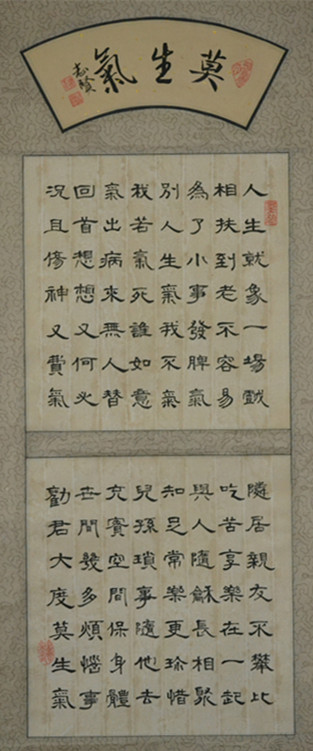 莫生氣
志賢
人生就象一場戲
相扶到老不容易
為了小事發脾氣
別人生氣我不氣
我若氣死誰如意
氣出病來無人替
回首想想又何必
況且傷神又費氣
隣居親友不攀比
吃苦享樂在一起
與人隨穌長相聚
知足常樂更珍惜
兒孫瑣事隨他去
充實空間保身體
世間幾多煩惱事
勸君大度莫生氣